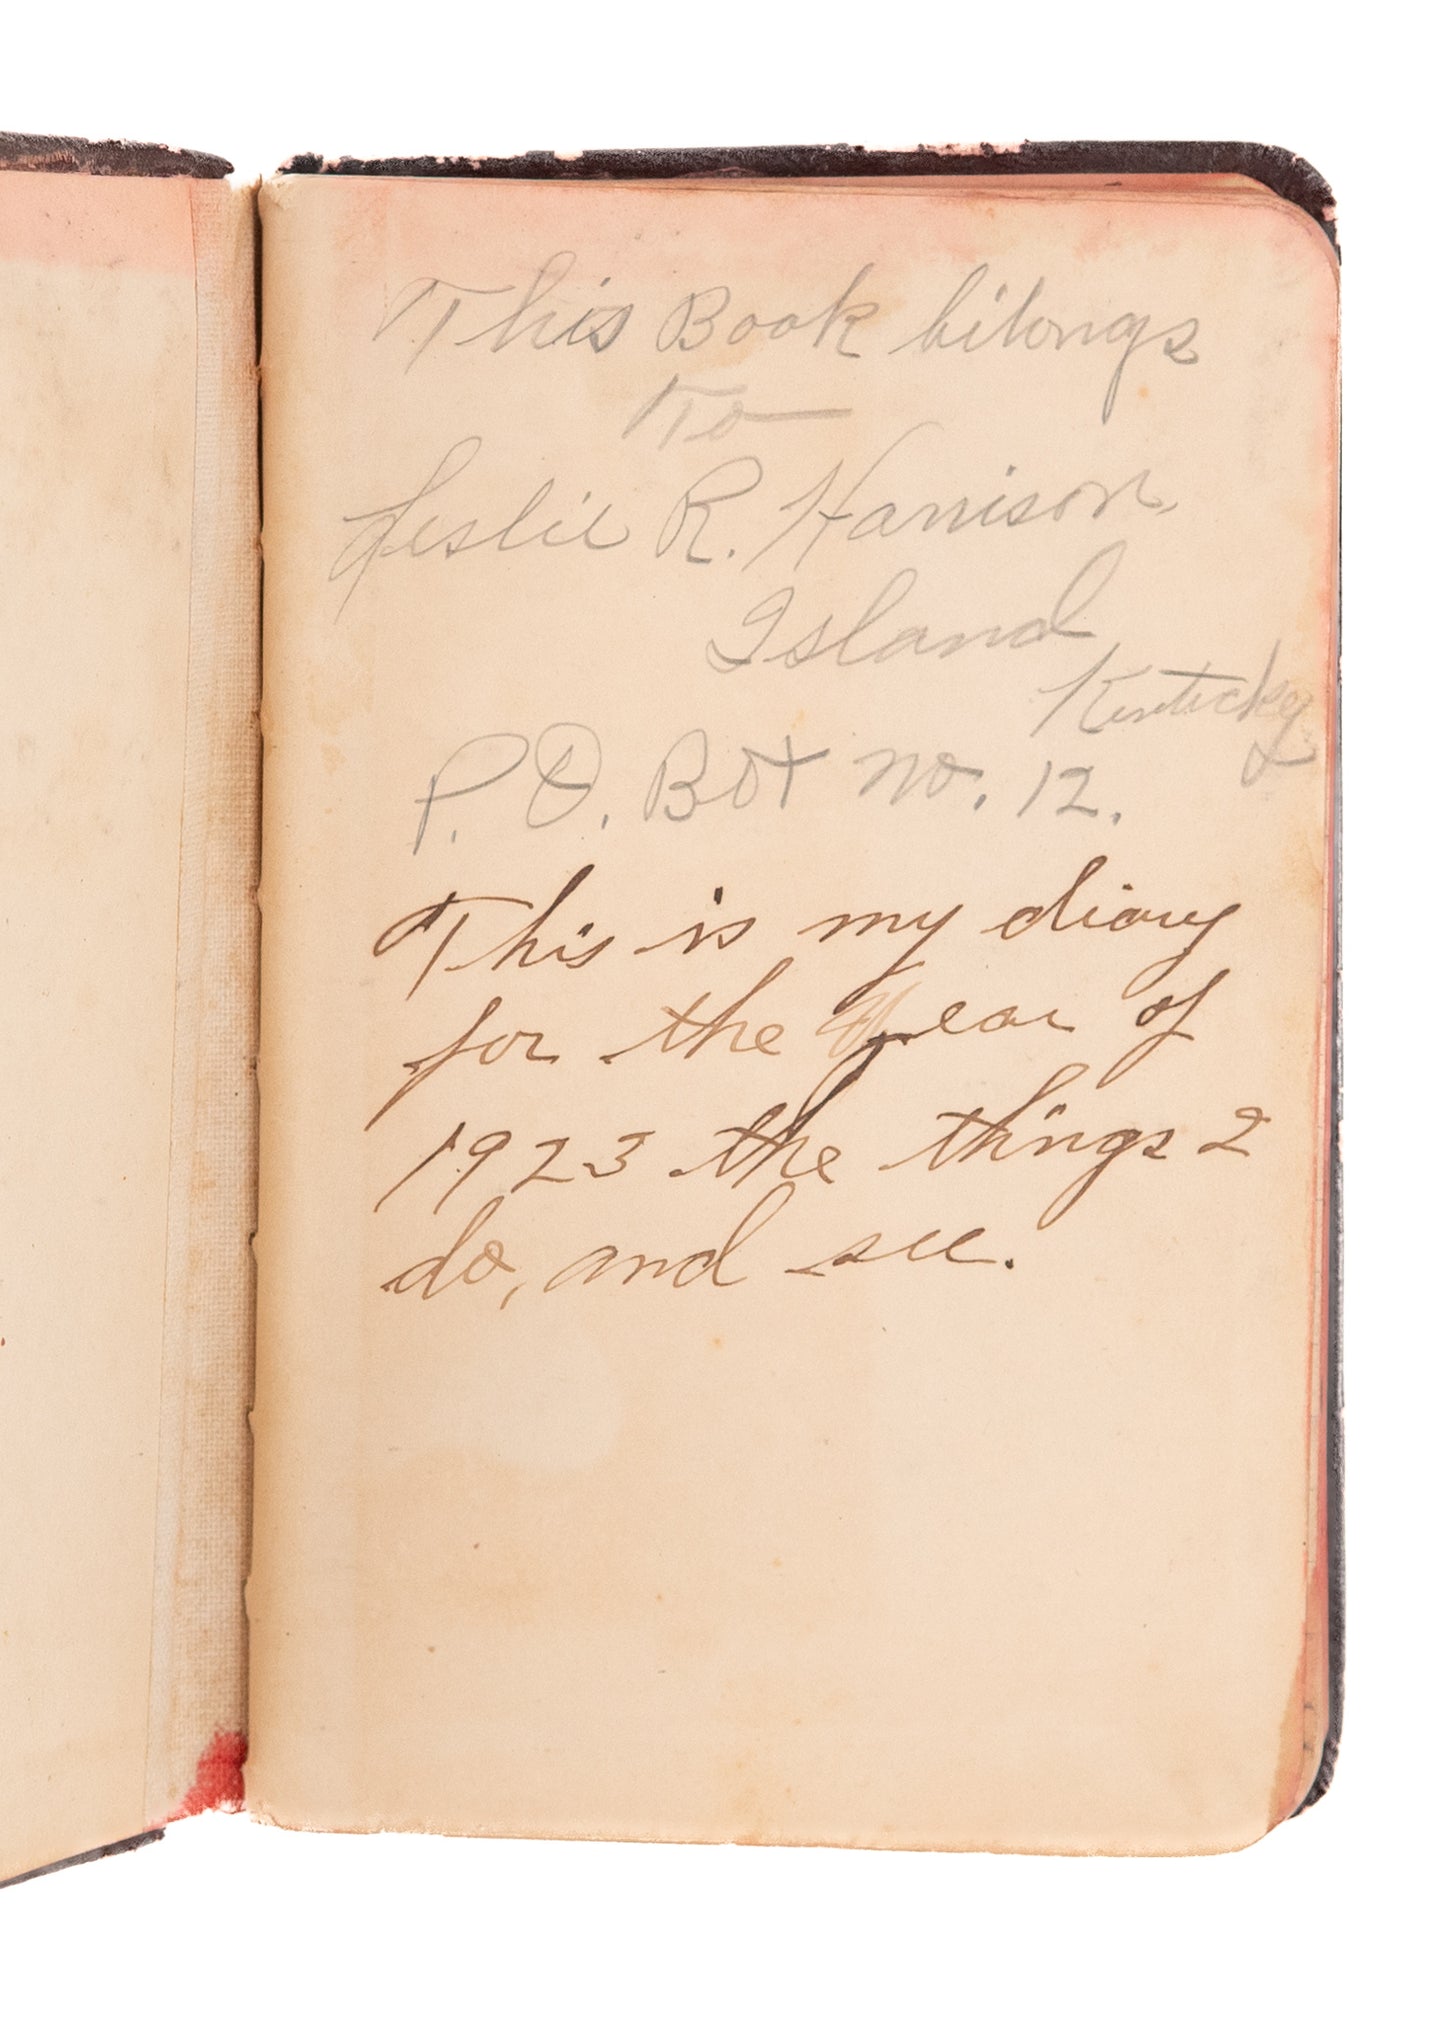 This Book bilongs
To
Leslie R. Harrison.
Island
Kinticky
P. O. Box no. 12.
This is my diary
for the Year of
1923 the things 2
do, and see.